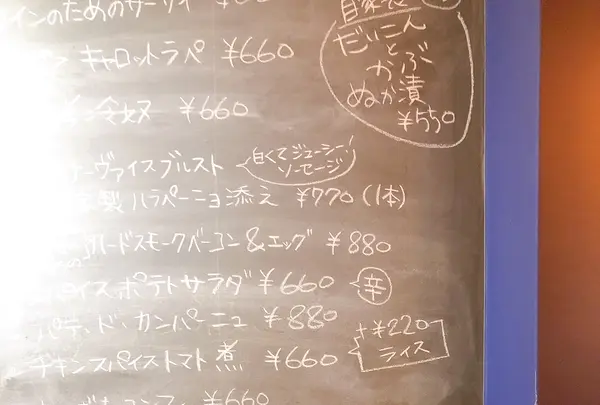 インのためのサーディ
キャロットラペ ¥660
冷奴 ¥660
ーヴァイスブルスト
白くてジューシー!
ソーセージ
製ハラペーニョ添え ¥770(1本)
ハードスモークベーコン&エッグ ¥880
パイスポテトサラダ ¥660 辛
パテ・ド・カンパーニュ ¥880
チキンスパイストマト煮 ¥660
+¥220
ライス
¥660
自家製
だいこん
と
かぶ
ぬか漬
¥550